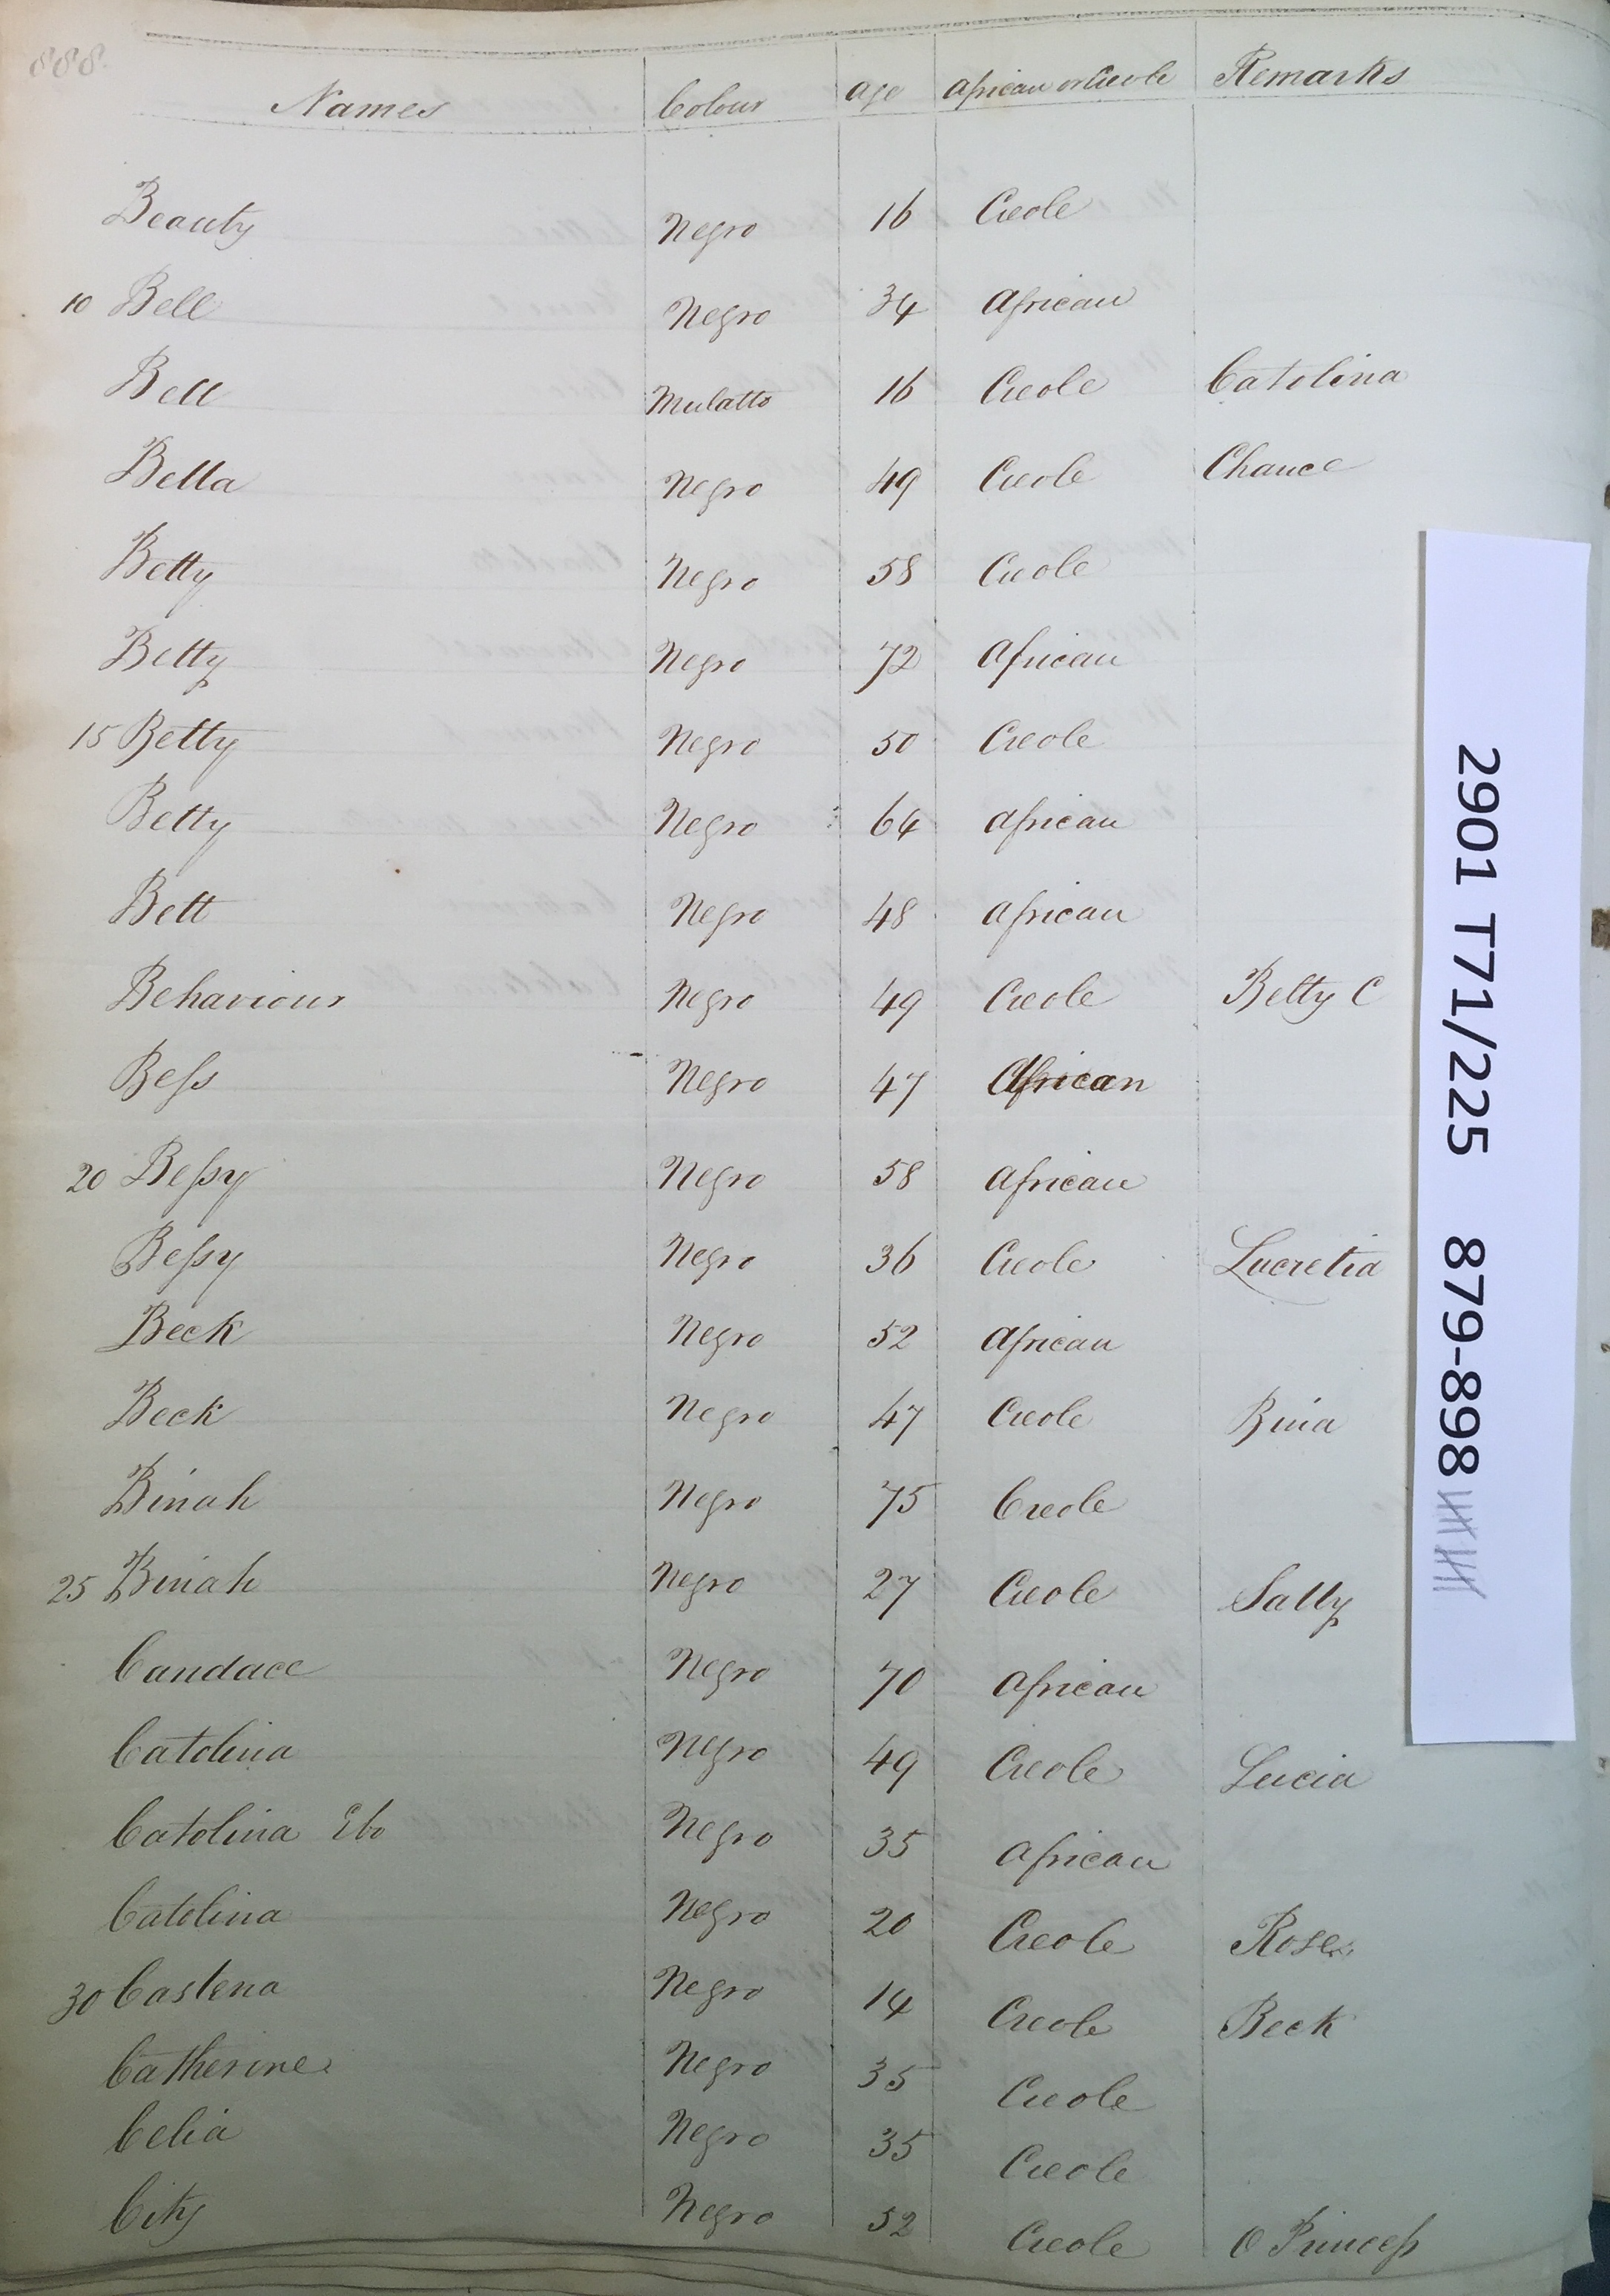 888.
Names Colour Age African or Creole Remarks
Beauty Negro 16 Creole
10 Bell Negro 34 African
Bell Mulatto 16 Creole Catolina
Bella Negro 49 Creole Chance
Betty Negro 58 Creole
Betty Negro 72 African
15 Betty Negro 50 Creole
Betty Negro 64 African
Bett Negro 48 African
Behaviour Negro 49 Creole Betty C
Bess Negro 47 African
20 Bessy Negro 58 African
Bessy Negro 36 Creole Lucretia
Beck Negro 52 African
Beck Negro 47 Creole Bina
Binah Negro 75 Creole
25 Binah Negro 27 Creole Sally
Candace Negro 70 African
Catolina Negro 49 Creole Lucia
Catolina Ebo Negro 35 African
Catolina Negro 20 Creole Rose
30 Castena Negro 14 Creole Beck
Catherine Negro 35 Creole
Celia Negro 35 Creole
City Negro 52 Creole O Princess
2901 T71/225 879-898